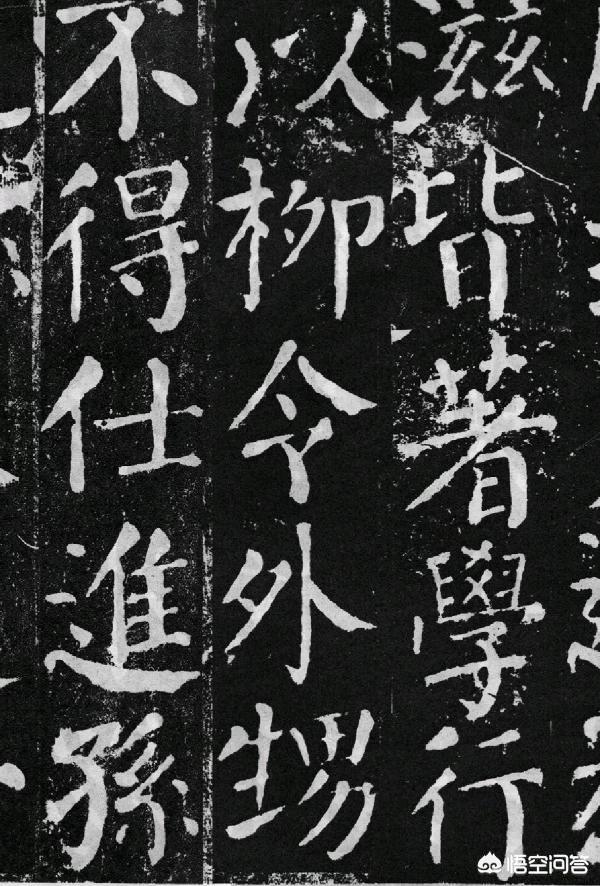 滋皆著學行
以柳令外甥
不得仕進孫
悟空问答